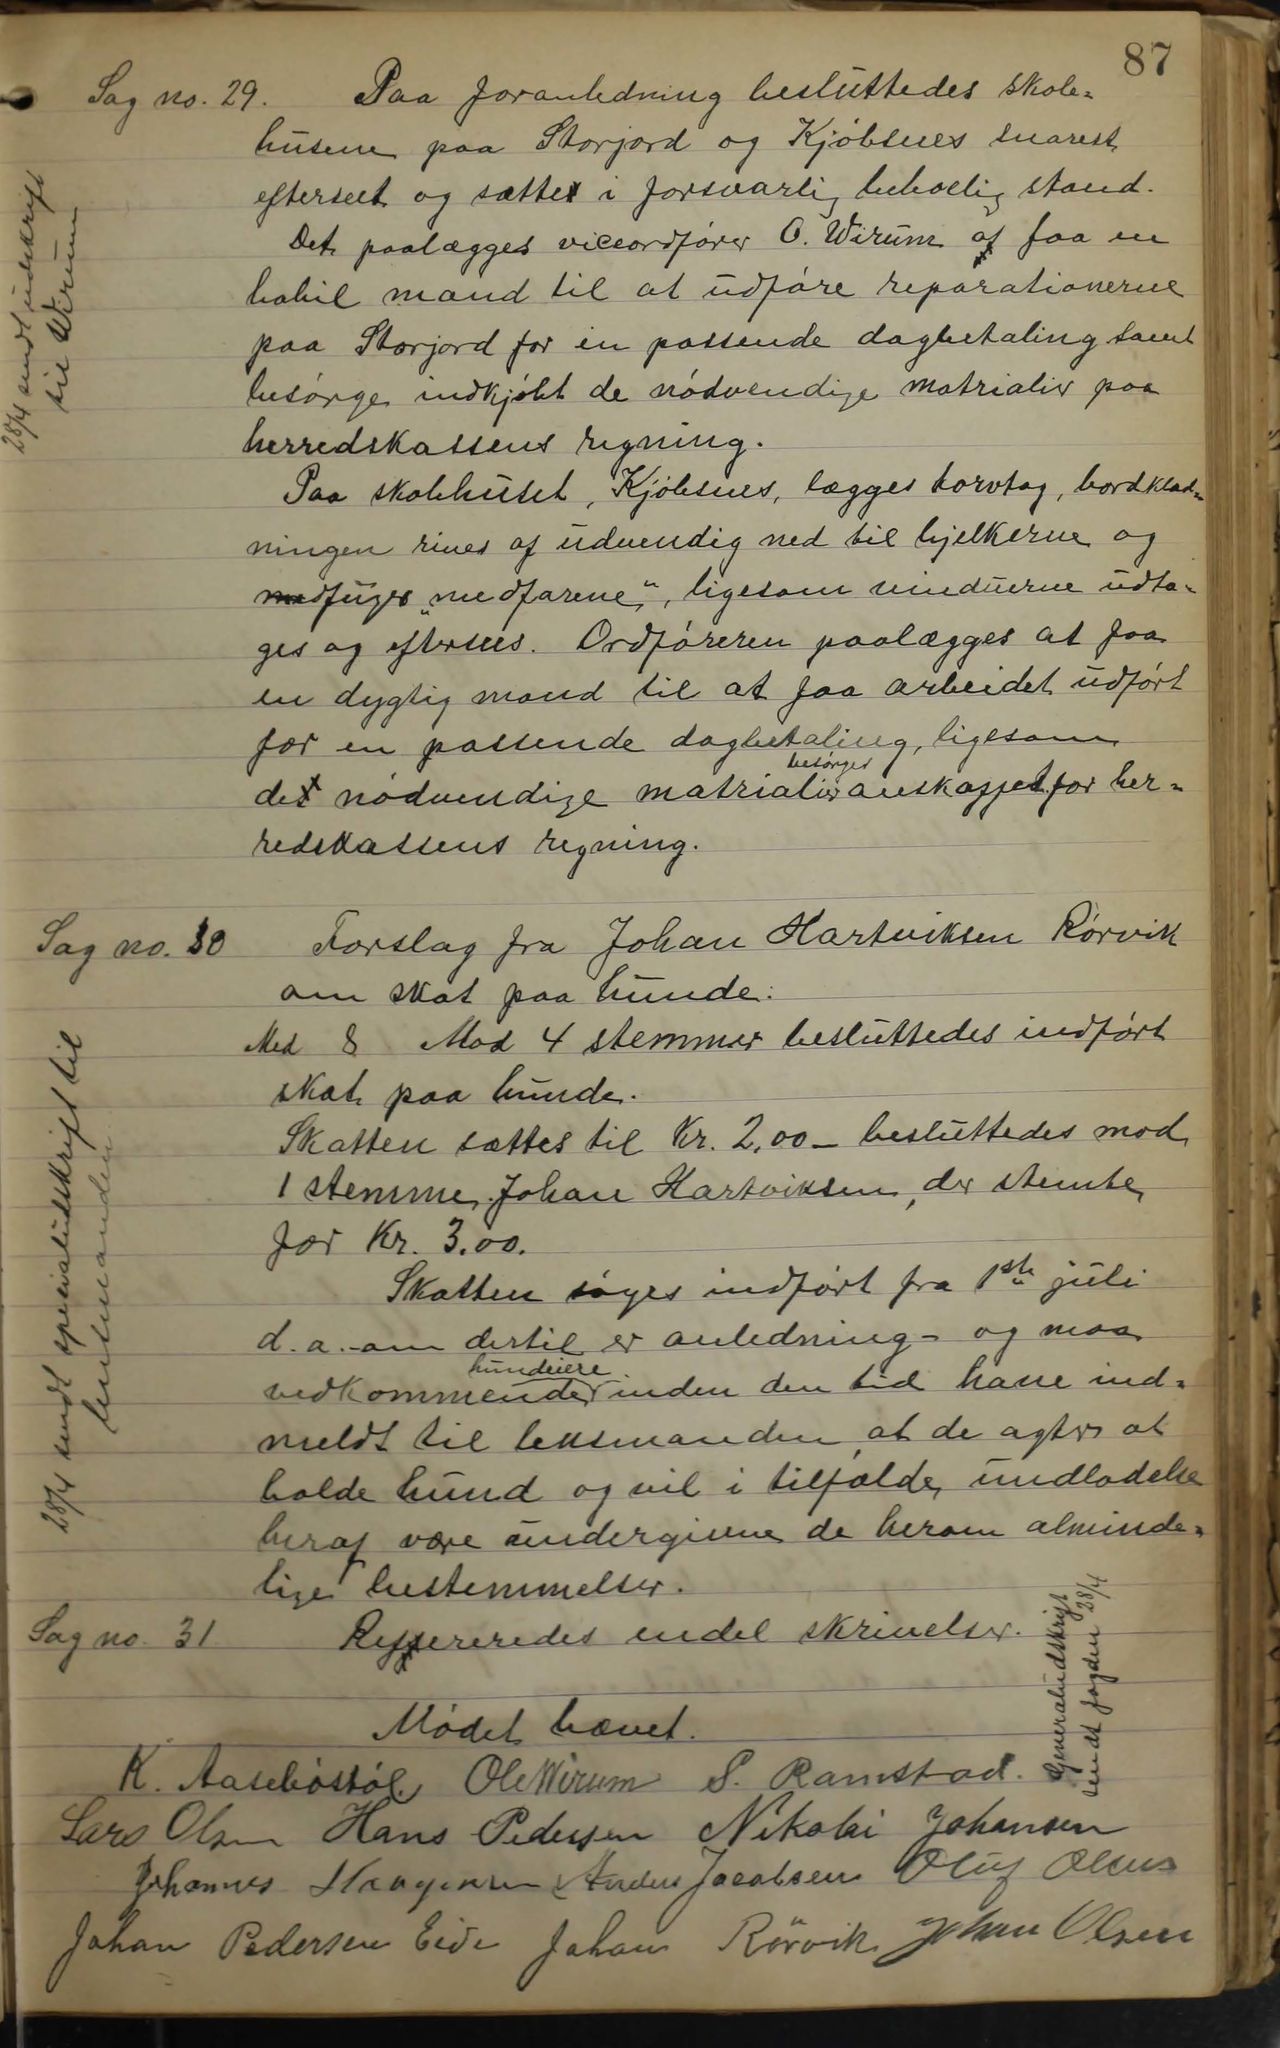 87
Sag no. 29. Paa foranledning besluttedes skole-
husene paa Storjord og Kjöbsnes snarest
efterseet og sættes i forsvarlig beboelig stand.
Det paalægges viceordfører O. Wirum at faa en
habil mand til at udføre reparationerne
paa Storjord for en passende dagbetaling samt
besørge indkjøbt de nødvendige matrialier paa
herredskassens regning.
Paa skolehuset, Kjöbsnes, lægges torvtag, bordklæd-
ningen rives af udvendig ned til bjelkerne og
medfuges „medfarene“, ligesom vinduerne udta-
ges og eftersees. Ordføreren paalægges at faa
en dygtig mand til at faa arbeidet udført
for en passende dagbetaling, ligesom
besørges
de nødvendige matrialier anskaffet for her-
redskassens regning.
28/4 sendt udskrift
til Wirum
Sag no. 30 Forslag fra Johan Hartviksen Rørvik
om skat paa hunde:
Med 8 Mod 4 stemmer besluttedes indført
skat paa hunde.
Skatten sættes til Kr. 2,00 – besluttedes mod
1 stemme, Johan Hartviksen, der stemte
for Kr. 3.00.
Skatten søges indført fra 1ste juli
d. a. - om dertil er anledning - og maa
hundeiere
vedkommende inden den tid have ind-
meldt til lensmanden, at de agter at
holde hund og vil i tilfælde undladelse
heraf være undergivne de herom alminde-
lige bestemmelser.
28/4 sendt specialudskrift til
lensmanden
Sag no. 31 Refereredes endel skrivelser.
Generaludskrift
sendt fogden 28/4
Mødet hævet.
K. Aasebøstøl Ole Wirum S. Ramstad.
Lars Olsen Hans Pedersen Nikolai Johansen
Johannes Haagensen Anders Jacobsen Oluf Olsen
Johan Pedersen Eide Johan Rörvik Johan Olsen